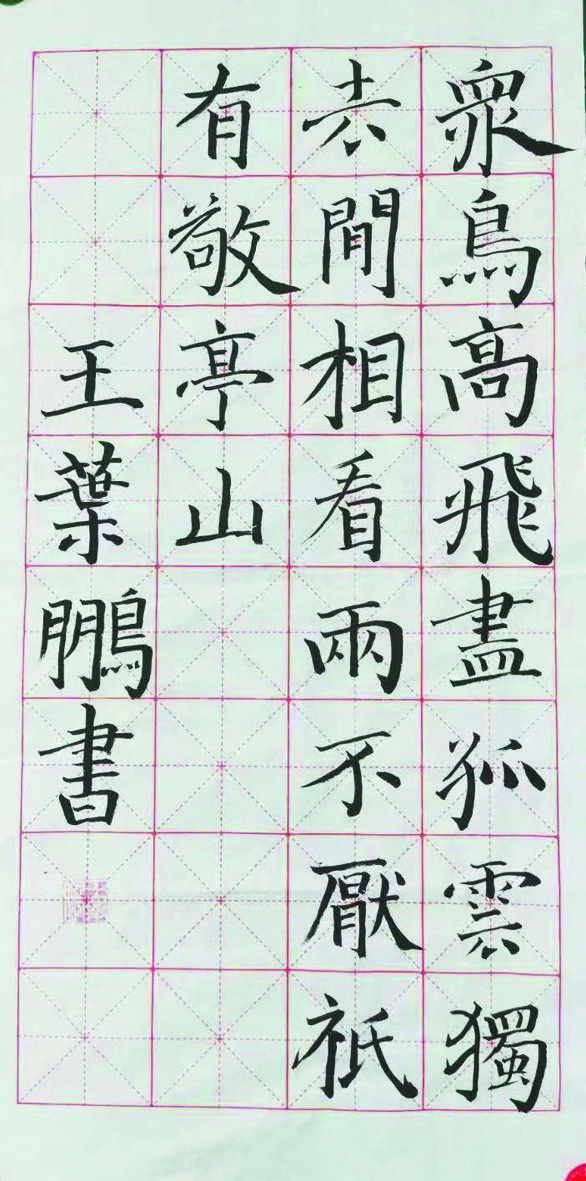 衆鳥高飛盡孤雲獨
去閒相看兩不厭祇
有敬亭山
王葉鵬書